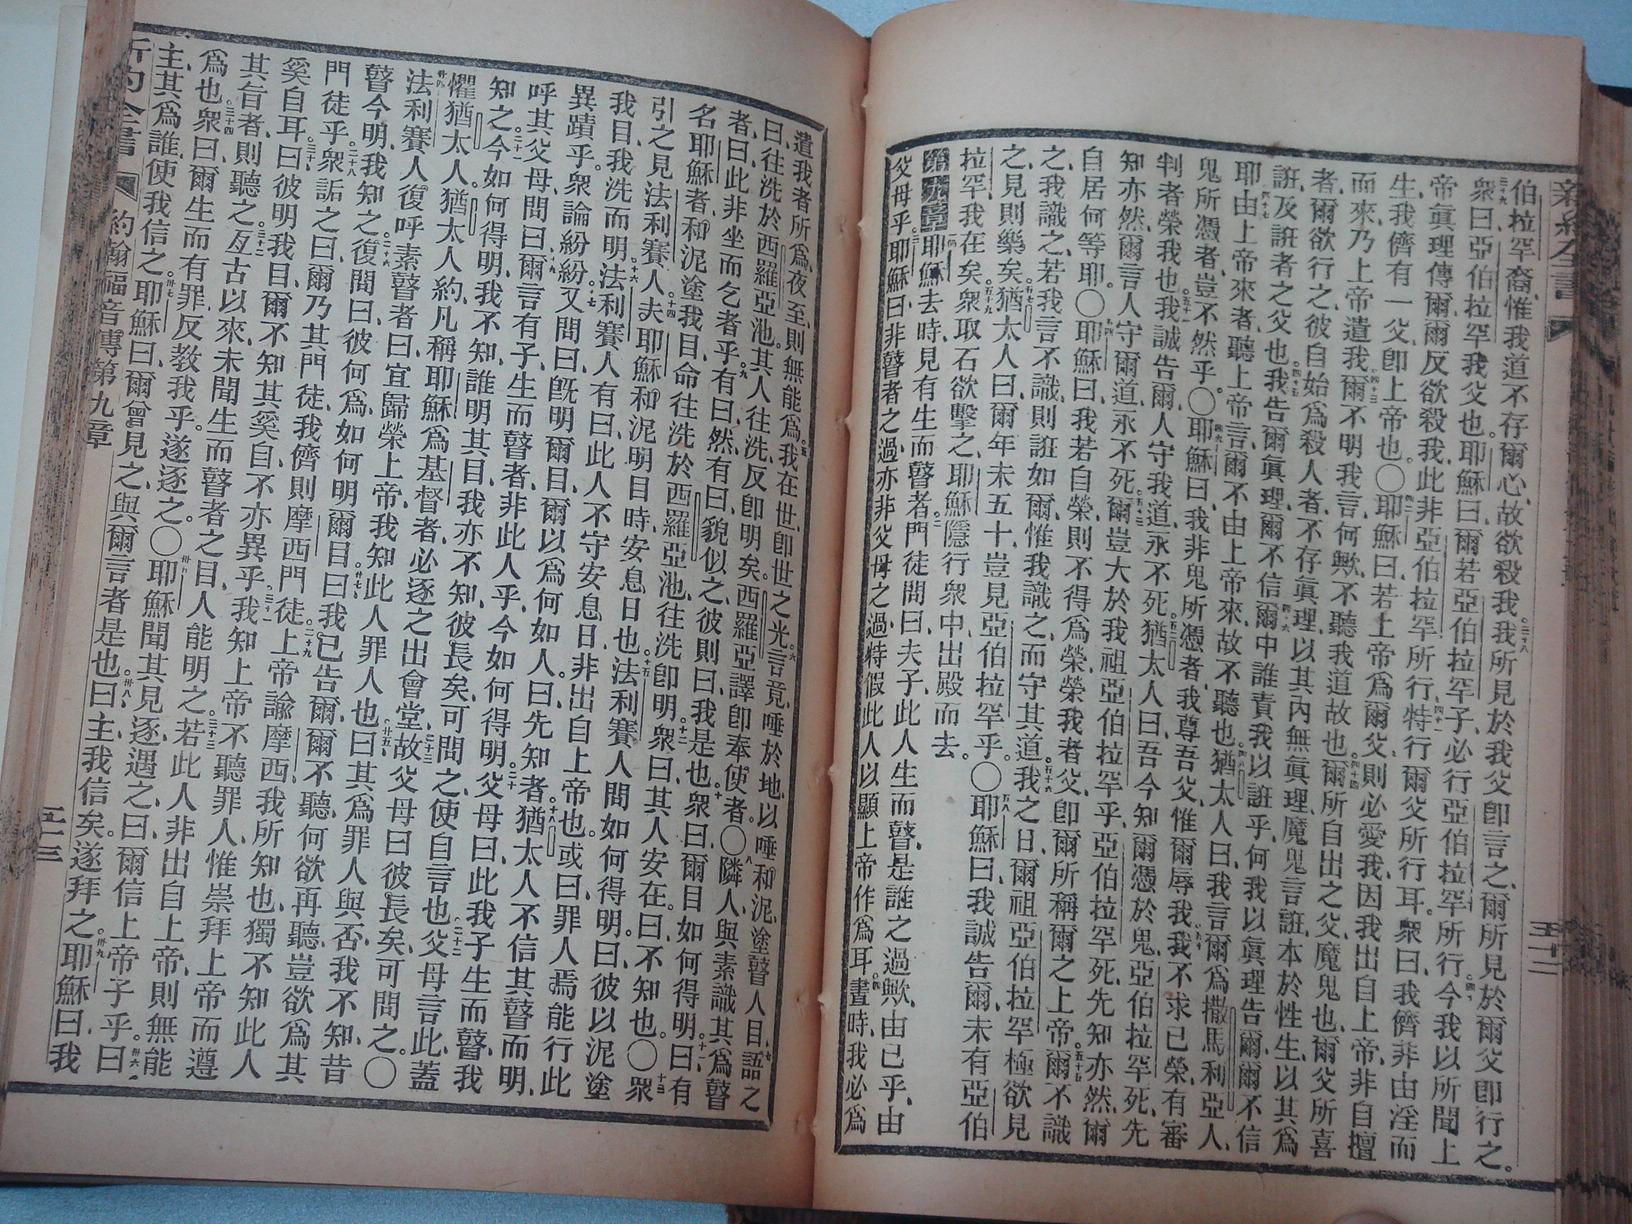 新約全書 五十二
伯拉罕裔、惟我道不存爾心、故欲殺我、三十八我所見於我父卽言之、爾所見於爾父卽行之。
三十九衆曰、亞伯拉罕我父也、耶穌曰、爾若亞伯拉罕子、必行亞伯拉罕所行、四十今我以所聞上
帝眞理傳爾、爾反欲殺我、此非亞伯拉罕所行、四十一特行爾父所行耳、衆曰、我儕非由淫而
生、我儕有一父、卽上帝也。〇四十二耶穌曰、若上帝爲爾父、則必愛我、因我出自上帝、非自擅
而來、乃上帝遣我、四十三爾不明我言何歟、不聽我道故也、四十四爾所自出之父魔鬼也、爾父所喜
者、爾欲行之、彼自始爲殺人者、不存眞理、以其內無眞理、魔鬼言誑、本於性生、以其爲
誑、及誑者之父也、四十五我告爾眞理、爾不信、四十六爾中誰責我以誑乎、何我以眞理告爾、爾不信
耶、四十七由上帝來者、聽上帝言、爾不由上帝來、故不聽也、四十八猶太人曰、我言爾爲撒馬利亞人、
鬼所憑者、豈不然乎。〇四十九耶穌曰、我非鬼所憑者、我尊吾父、惟爾辱我、五十我不求己榮、有審
判者榮我也、五十一我誠告爾、人守我道、永不死、五十二猶太人曰、吾今知爾憑於鬼、亞伯拉罕死、先
知亦然、爾言人守爾道、永不死、五十三爾豈大於我祖亞伯拉罕乎、亞伯拉罕死、先知亦然、爾
自居何等耶〇五十四耶穌曰、我若自榮、則不得爲榮、榮我者父、卽爾所稱爾之上帝、五十五爾不識
之、我識之、若我言不識、則誑如爾、惟我識之、而守其道、五十六我之日、爾祖亞伯拉罕極欲見
之、見則樂矣、五十七猶太人曰、爾年未五十、豈見亞伯拉罕乎。〇五十八耶穌曰、我誠告爾、未有亞伯
拉罕、我在矣、五十九衆取石欲擊之、耶穌隱、行衆中、出殿而去。
第九章 一耶穌去時、見有生而瞽者、二門徒問曰、夫子、此人生而瞽、是誰之過歟、由己乎、由
父母乎、三耶穌曰、非瞽者之過、亦非父母之過、特假此人以顯上帝作爲耳、四晝時、我必爲
遣我者所爲、夜至、則無能爲、五我在世、卽世之光、六言竟、唾於地、以唾和泥、塗瞽人目、七語之
曰、往洗於西羅亞池。其人往洗、反卽明矣。西羅亞譯卽奉使者。〇八隣人與素識其爲瞽
者曰、此非坐而乞者乎、九有曰、然、有曰、貌似之、彼則曰、我是也、十衆曰、爾目如何得明、十一曰、有
名耶穌者、和泥塗我目、命往洗於西羅亞池、往洗卽明、十二衆曰、其人安在、曰、不知也。〇十三衆
引之見法利賽人、十四夫耶穌和泥明目時、安息日也、十五法利賽人問如何得明、曰、彼以泥塗
我目、我洗而明、十六法利賽人有曰、此人不守安息日、非出自上帝也、或曰、罪人焉能行此
異蹟乎。衆論紛紛、十七又問曰、旣明爾目、爾以爲何如人、曰、先知者、十八猶太人不信其瞽而明、
呼其父母、十九問曰、爾言有子、生而瞽者、非此人乎、今如何得明、二十父母曰、此我子、生而瞽、我
知之、二十一今如何得明、我不知、誰明其目、我亦不知、彼長矣、可問之、使自言也、二十二父母言此、蓋
懼猶太人、猶太人約、凡稱耶穌爲基督者、必逐之出會堂、二十三故父母曰、彼長矣、可問之。〇
廿四法利賽人復呼素瞽者曰、宜歸榮上帝、我知此人罪人也、廿五曰、其爲罪人與否、我不知、昔
瞽今明、我知之、二十六復問曰、彼何爲、如何明爾目、廿七曰、我已告爾、爾不聽、何欲再聽、豈欲爲其
門徒乎、二十八衆詬之曰、爾乃其門徒、我儕則摩西門徒、二十九上帝諭摩西、我所知也、獨不知此人
奚自耳、三十曰、彼明我目、爾不知其奚自、不亦異乎、三十一我知上帝不聽罪人、惟崇拜上帝而遵
其旨者、則聽之、三十二亙古以來、未聞生而瞽者之目、人能明之、三十三若此人非出自上帝、則無能
爲也、三十四衆曰、爾生而有罪、反教我乎、遂逐之。〇卅五耶穌聞其見逐、遇之、曰、爾信上帝子乎、卅六曰、
主、其爲誰、使我信之、卅七耶穌曰、爾曾見之、與爾言者是也、卅八曰、主、我信矣、遂拜之、卅九耶穌曰、我
新約全書 約翰福音傳第九章 五十三